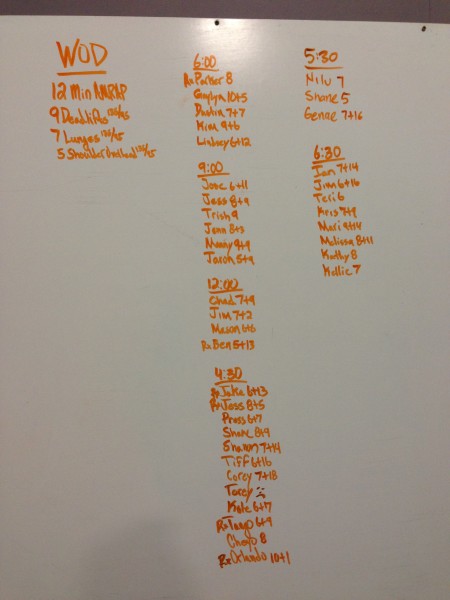 WOD
12 Min AMRAP
9 Deadlifts 135/95
7 Lunges 135/95
5 Shoulder Overhead 135/95
6:00
Rx Parker 8
10+5
Dustin 7+7
Kim 9+6
Lindsey 6+12
9:00
Jose 6+11
Jess 8+9
Trish 9
Jenn 8+3
Manny 9+9
Jaron 5+9
12:00
Chad 7+9
Jim 7+2
Mason 6+6
Rx Ben 5+13
4:30
Rx Jake 6+13
Rx Jess 8+5
Press 6+7
Shane 8+9
Shawn 7+14
Tiff 6+16
Corey 7+18
Torey
Kale 6+17
Rx 6+9
Cheyo 8
Rx Orlando 10+1
5:30
Nilu 7
Shane 5
Genae 7+16
6:30
Jon 7+14
Jim 6+16
Teri 6
Kris 7+9
Mari 9+14
Melissa 8+11
Kathy 8
Kollie 7